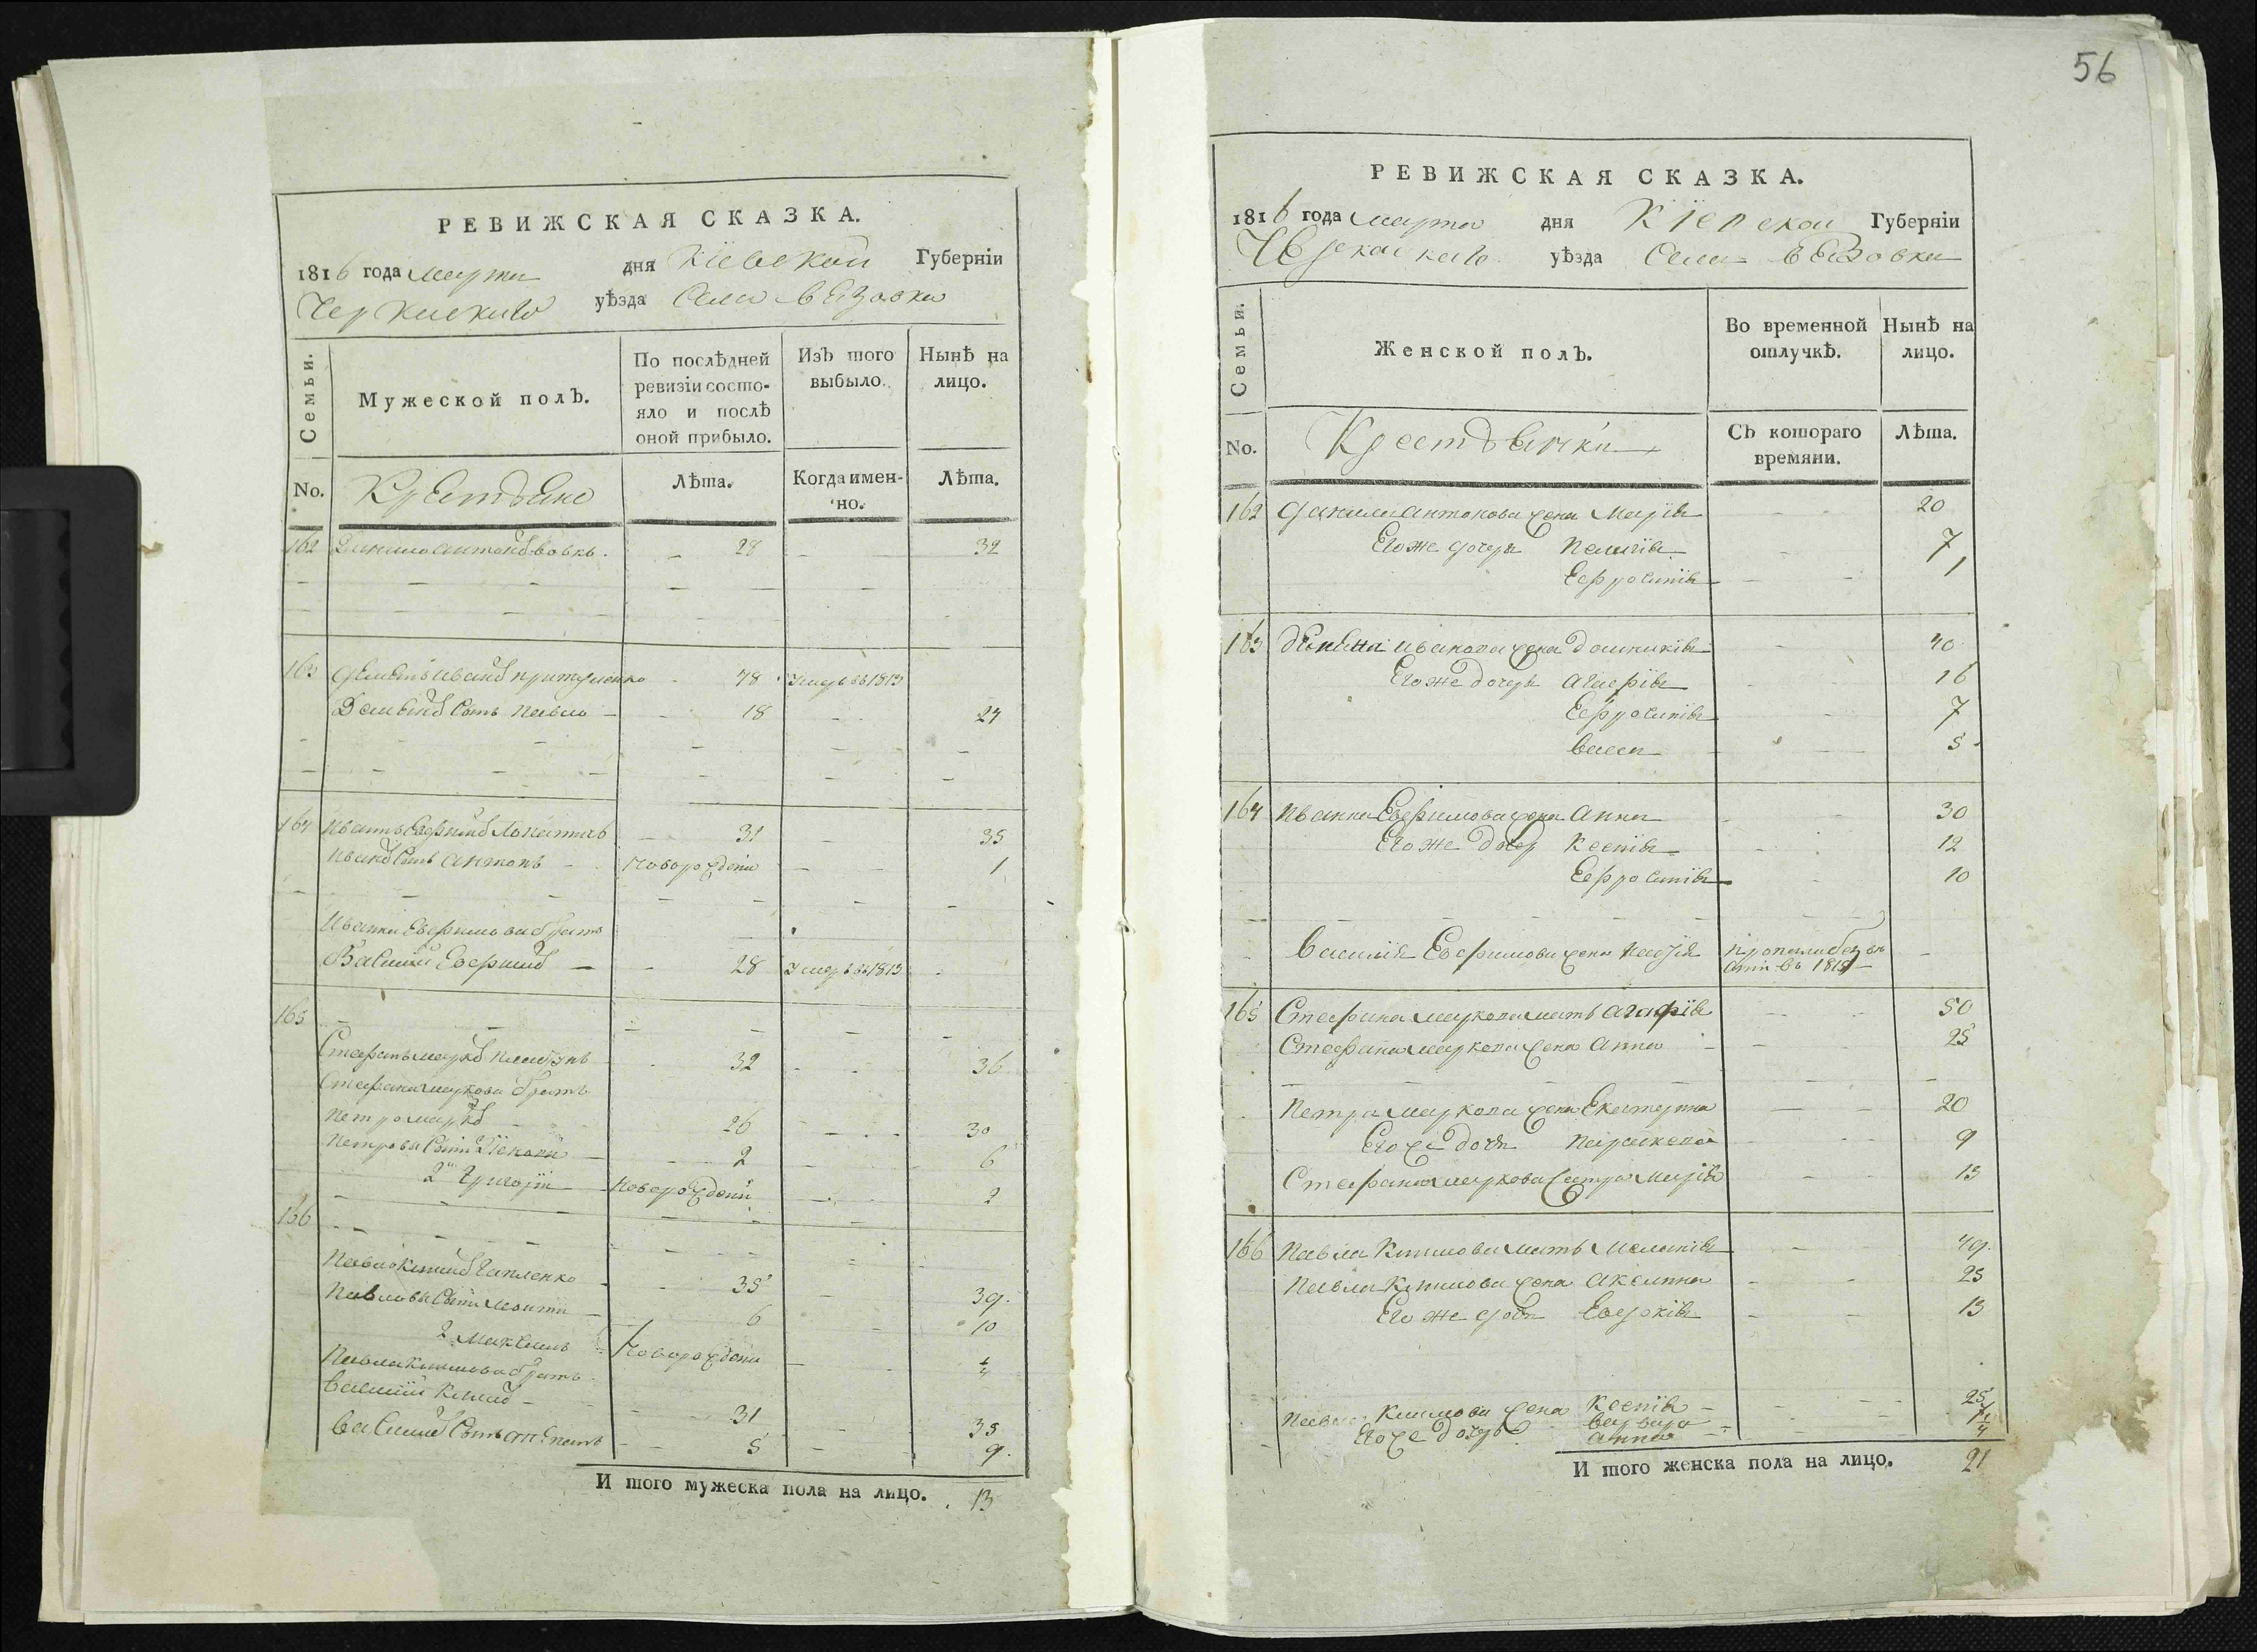 56
РЕВИЖСКАЯ СКАЗКА.
1816 года марта дня Кіевской Губерніи
Черкаскаго уѣзда Села Вязовка
Семьи.
Мужеской полъ.
По послѣдней ревизіи состояло и послѣ оной прибыло.
Изъ того выбыло.
Нынѣ на лицо.
No.
Крестьяне
Лѣта.
Когда именно.
Лѣта.
162 Данило Антоновъ Вовкъ. 28 32
163 78 Умеръ въ 1813
Сынъ Павло 18 24
164 Иванъ Евфимовъ Лопатичъ 31 35
Ивановъ Сынъ Антонъ Новорожденъ 1
Ивана Евфимова братъ
Василий Евфимовъ 28 Умеръ въ 1813
165
Стефанъ Марковъ 32 36
Стефана Маркова братъ
Петро Марковъ 26 30
Петровы Сыны 2 6
2й Григорій Новорожденъ 2
166
Павло Климовъ Гапленко 35 39
Павловы Сыны 6 10
2 Максимъ Новорожденъ 1/4
Павла Климова братъ
Василий Климовъ 31 35
Василіевъ Сынъ 5 9
И того мужеска пола на лицо. 13
РЕВИЖСКАЯ СКАЗКА.
1816 года марта дня Кіевской Губерніи
Черкаскаго уѣзда Села Вязовка
Семьи.
Женской полъ.
Во временной отлучкѣ.
Нынѣ на лицо.
No.
Крестьянки
Съ котораго времяни.
Лѣта.
162 Данила Антонова жена Марія 20
Его же дочери Пелагія 7
Евфросинія 1
163 Ивановa жена Домникія 40
Его же дочерь Агафія 16
Евфросинія 7
Васса 5
164 Ивана Евфимова жена Анна 30
Его же дочерь Ксенія 12
Евфросинія 10
Василія Евфимова жена Марія въ 1815
165 Стефана Маркова мать Агафія 50
Стефана Маркова жена Анна 25
Петра Маркова жена Екатерина 20
Его же дочь Параскева 9
Стефана Маркова Сестра Марія 13
166 Павла Климова мать Меланія 49
Павла Климова жена Акелина 25
Его же дочь Евдокія 13
Павла Климова жена Ксенія 25
Его же дочерь Варвара
Анна
И того женска пола на лицо. 21